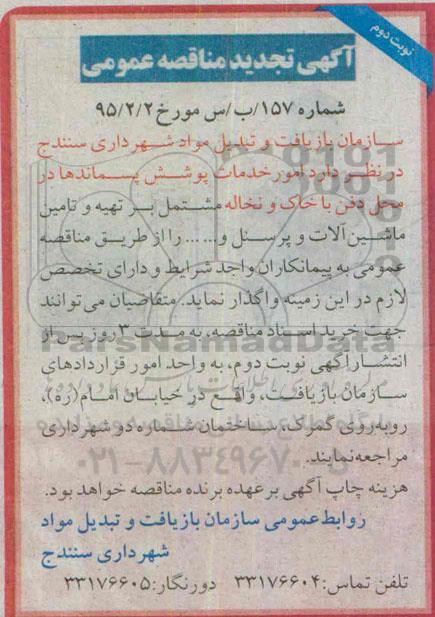 نوبت دوم
آگهی تجدید مناقصه عمومی
شماره ۱۵۷/ب/س مورخ ۹۵/۲/۲
سازمان بازیافت و تبدیل مواد شهرداری سنندج
در نظر دارد امور خدمات پوشش پسماندها در
محل دفن با خاک و نخاله مشتمل بر تهیه و تامین
ماشین آلات و پرسنل و... ... را از طریق مناقصه
عمومی به پیمانکاران واجد شرایط و دارای تخصص
لازم در این زمینه واگذار نماید. متقاضیان می توانند
جهت خرید اسناد مناقصه، به مدت ۳ روز پس از
انتشار آگهی نوبت دوم، به واحد امور قراردادهای
سازمان بازیافت، واقع در خیابان امام (ره)،
روبه‌روی گمرک، ساختمان شماره دو شهرداری
مراجعه نمایند.
هزینه چاپ آگهی بر عهده برنده مناقصه خواهد بود.
روابط عمومی سازمان بازیافت و تبدیل مواد
شهرداری سنندج
تلفن تماس: ۳۳۱۷۶۶۰۴ دورنگار: ۳۳۱۷۶۶۰۵
ParsNamadData
۰۲۱-۸۸۳۴۹۶۷۰-۵